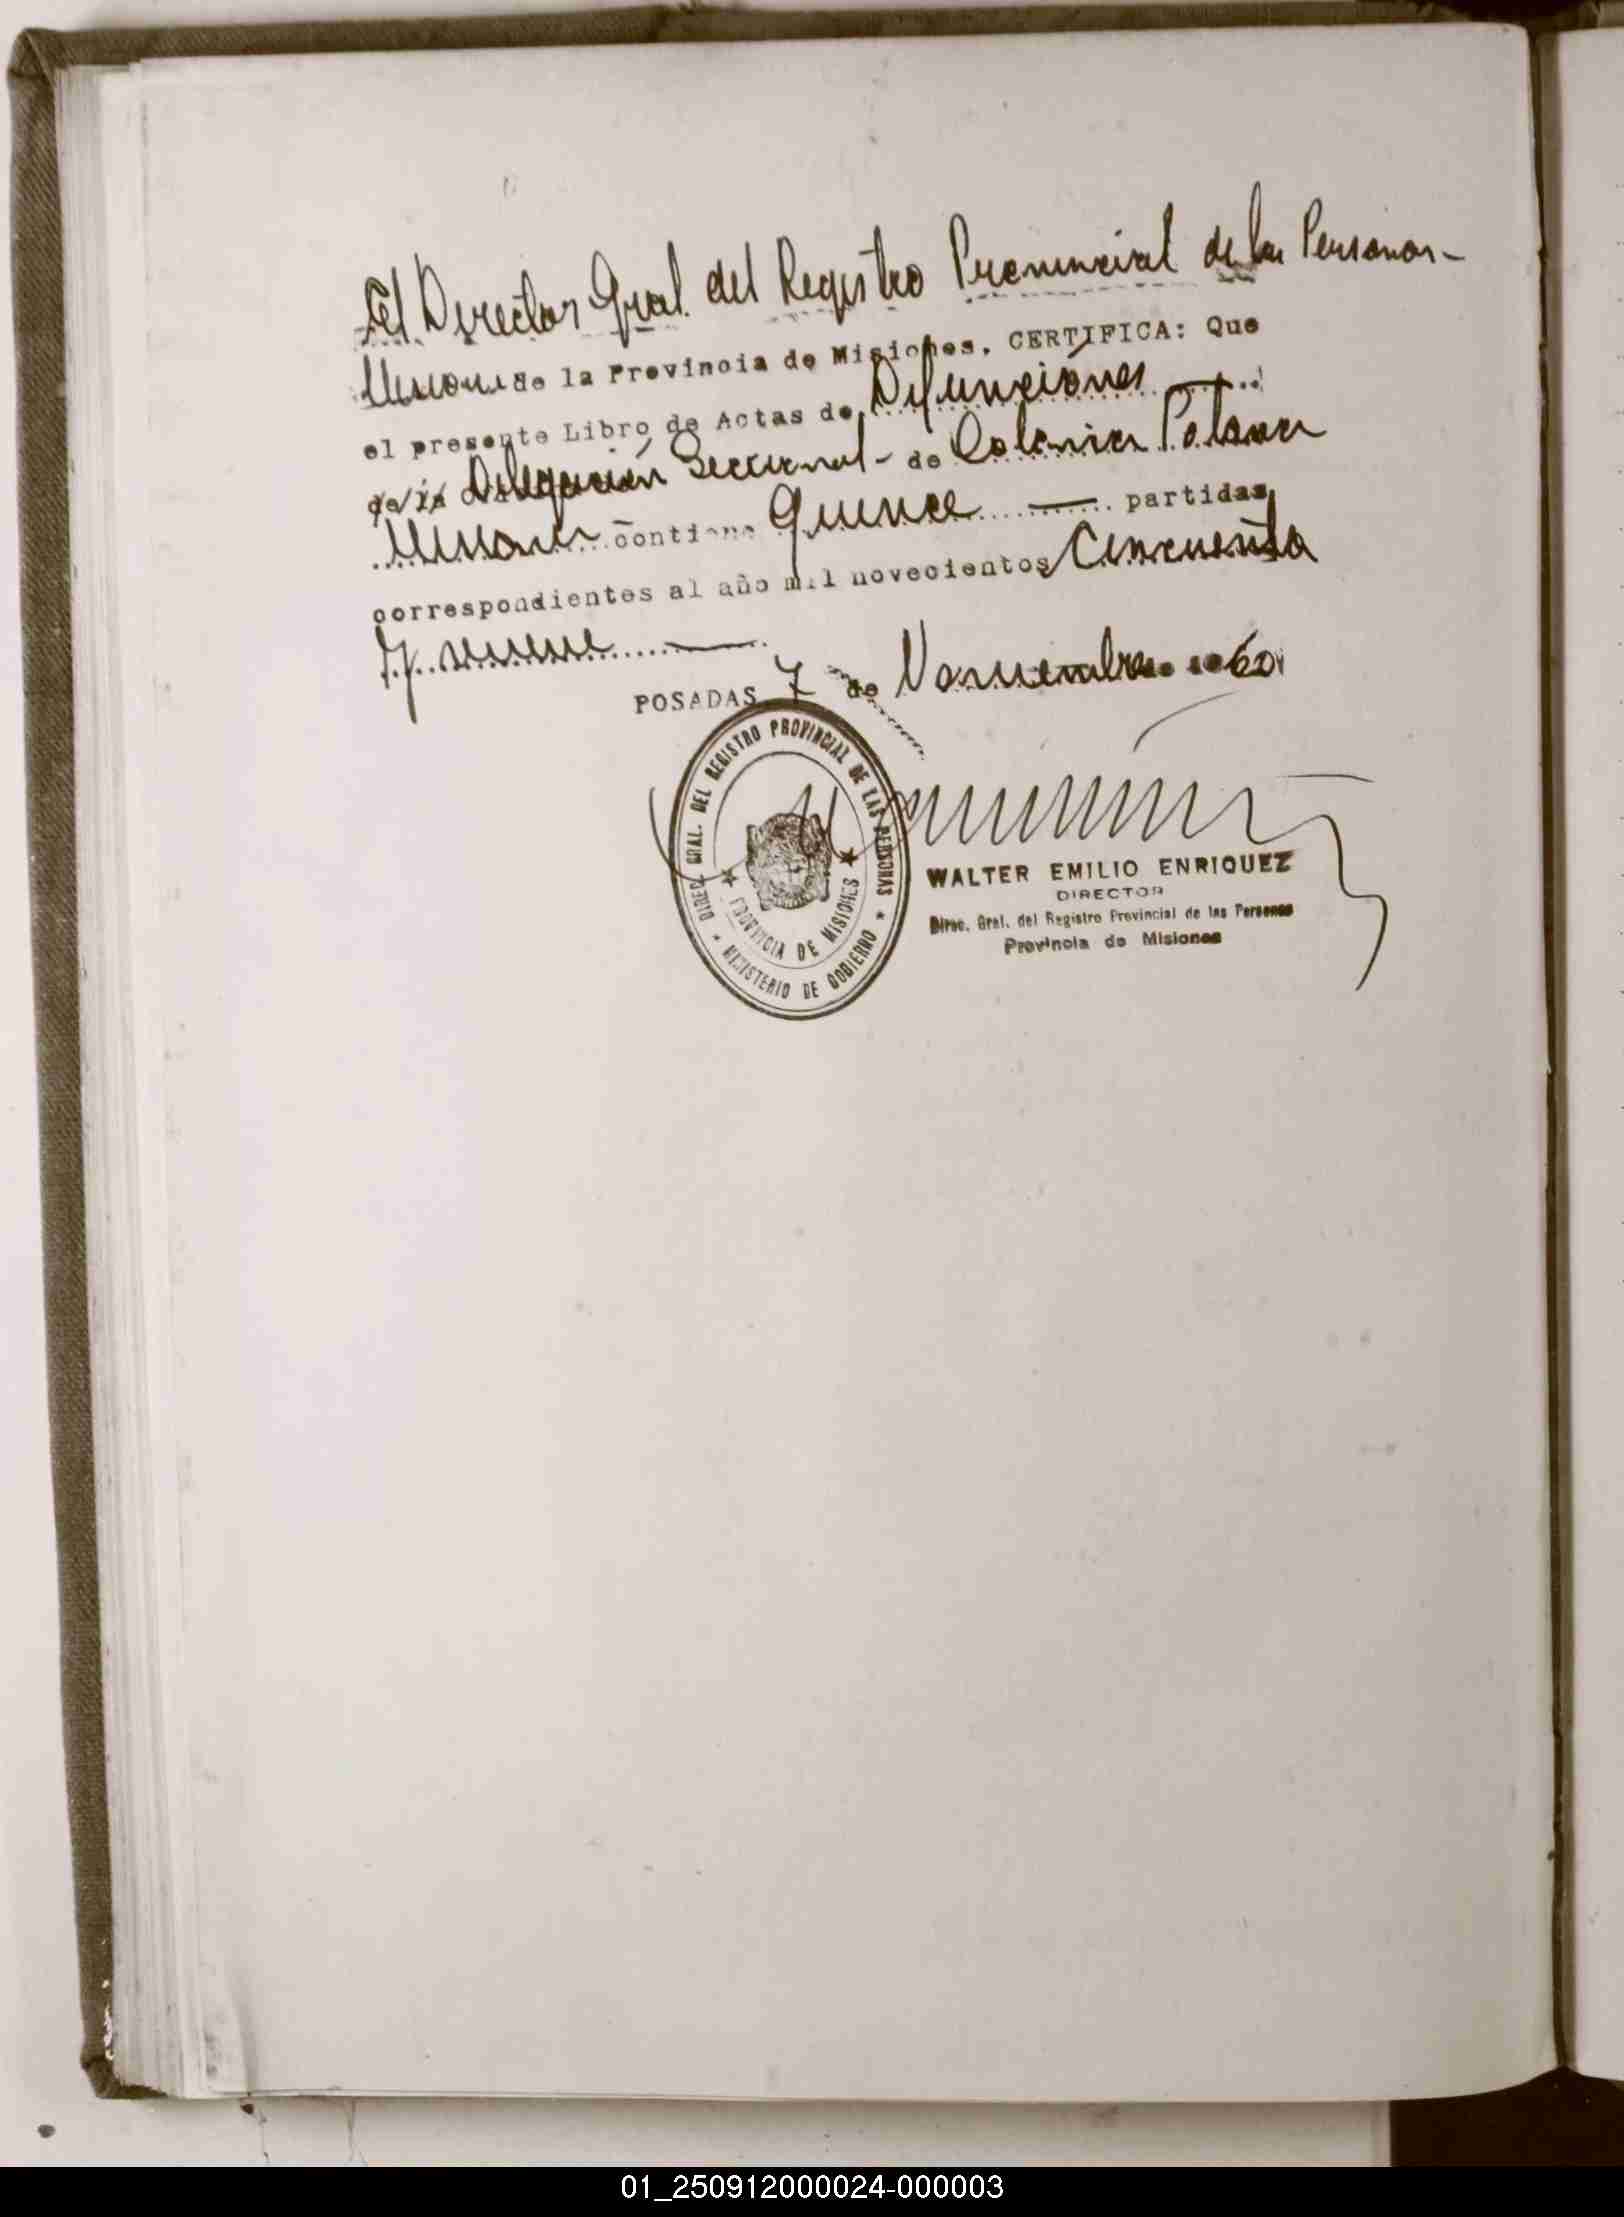 El Director Gral. del Registro Provincial de las Personas-
Misiones de la Provincia de Misiones, CERTIFICA: Que
el presente Libro de Actas de Defunciones
de la Delegación Seccional- de Colonia Polana
Misiones contiene Quince partidas
correspondientes al año mil novecientos Cincuenta
y nueve
POSADAS, 7 de Noviembre 1960
DIREC. GRAL. DEL REGISTRO PROVINCIAL DE LAS PERSONAS
PROVINCIA DE MISIONES
MINISTERIO DE GOBIERNO
WALTER EMILIO ENRIQUEZ
DIRECTOR
Direc. Gral. del Registro Provincial de las Personas
Provincia de Misiones
01_250912000024-000003